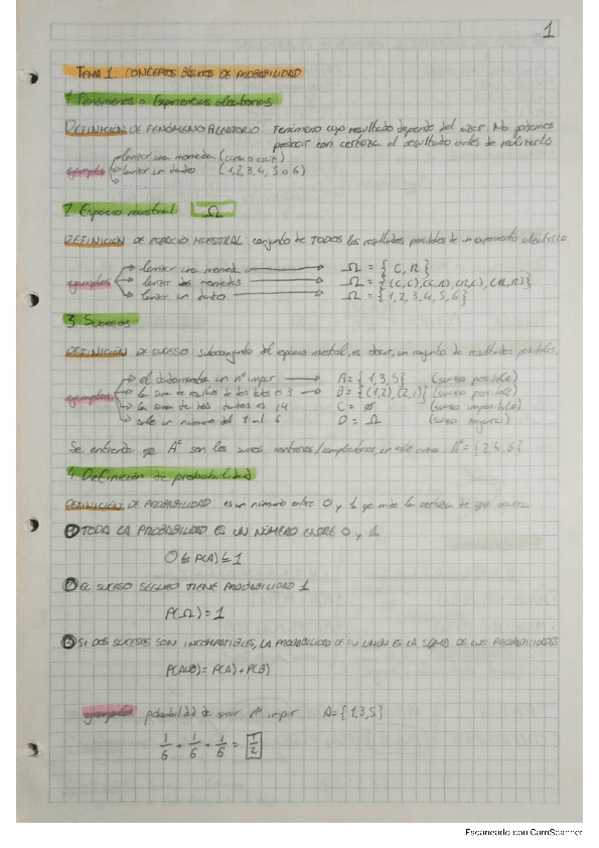 1
TEMA 1: CONCEPTOS BÁSICOS DE PROBABILIDAD
1. Fenómenos o Experiencias aleatorias
DEFINICIÓN DE FENÓMENO ALEATORIO fenómeno cuyo resultado depende del azar. No podemos
predecir con certeza el resultado antes de realizarlo
ejemplos lanzar una moneda (cara o cruz)
lanzar un dado (1,2,3,4,5 o 6)
2. Espacio muestral Ω
DEFINICIÓN DE ESPACIO MUESTRAL conjunto de TODOS los resultados posibles de un experimento aleatorio
ejemplos → lanzar una moneda → Ω = {C, R}
→ lanzar dos monedas → Ω = {(C,C),(C,R),(R,C),(R,R)}
→ lanzar un dado → Ω = {1,2,3,4,5,6}
3. Sucesos
DEFINICIÓN DE SUCESO subconjunto del espacio mestral, es decir, un conjunto de resultados posibles.
ejemplos → el dado muestra un nº impar → A = {1,3,5} (suceso posible)
→ la suma de dos dados es 3 → B = {(1,2),(2,1)} (suceso posible)
→ la suma de dos dados es 14 C = ∅ (suceso imposible)
→ sale un número del 1 al 6 D = Ω (suceso seguro)
Se entiende que Aᶜ son los sucesos contrarios/complementarios, en este caso: Aᶜ = {2,4,6}
4. Definición de probabilidad
DEFINICIÓN DE PROBABILIDAD: es un número entre 0 y 1 que mide la certeza de que ocurra
① TODA LA PROBABILIDAD ES UN NÚMERO ENTRE 0 y 1
0 ≤ P(A) ≤ 1
② EL SUCESO SEGURO TIENE PROBABILIDAD 1
P(Ω) = 1
③ SI DOS SUCESOS SON INCOMPATIBLES, LA PROBABILIDAD DE SU UNIÓN ES LA SUMA DE SUS PROBABILIDADES
P(A∪B) = P(A) + P(B)
ejemplo probabilidad de sacar nº impar A = {1,3,5}
1/6 + 1/6 + 1/6 = 1/2
Escaneado con CamScanner